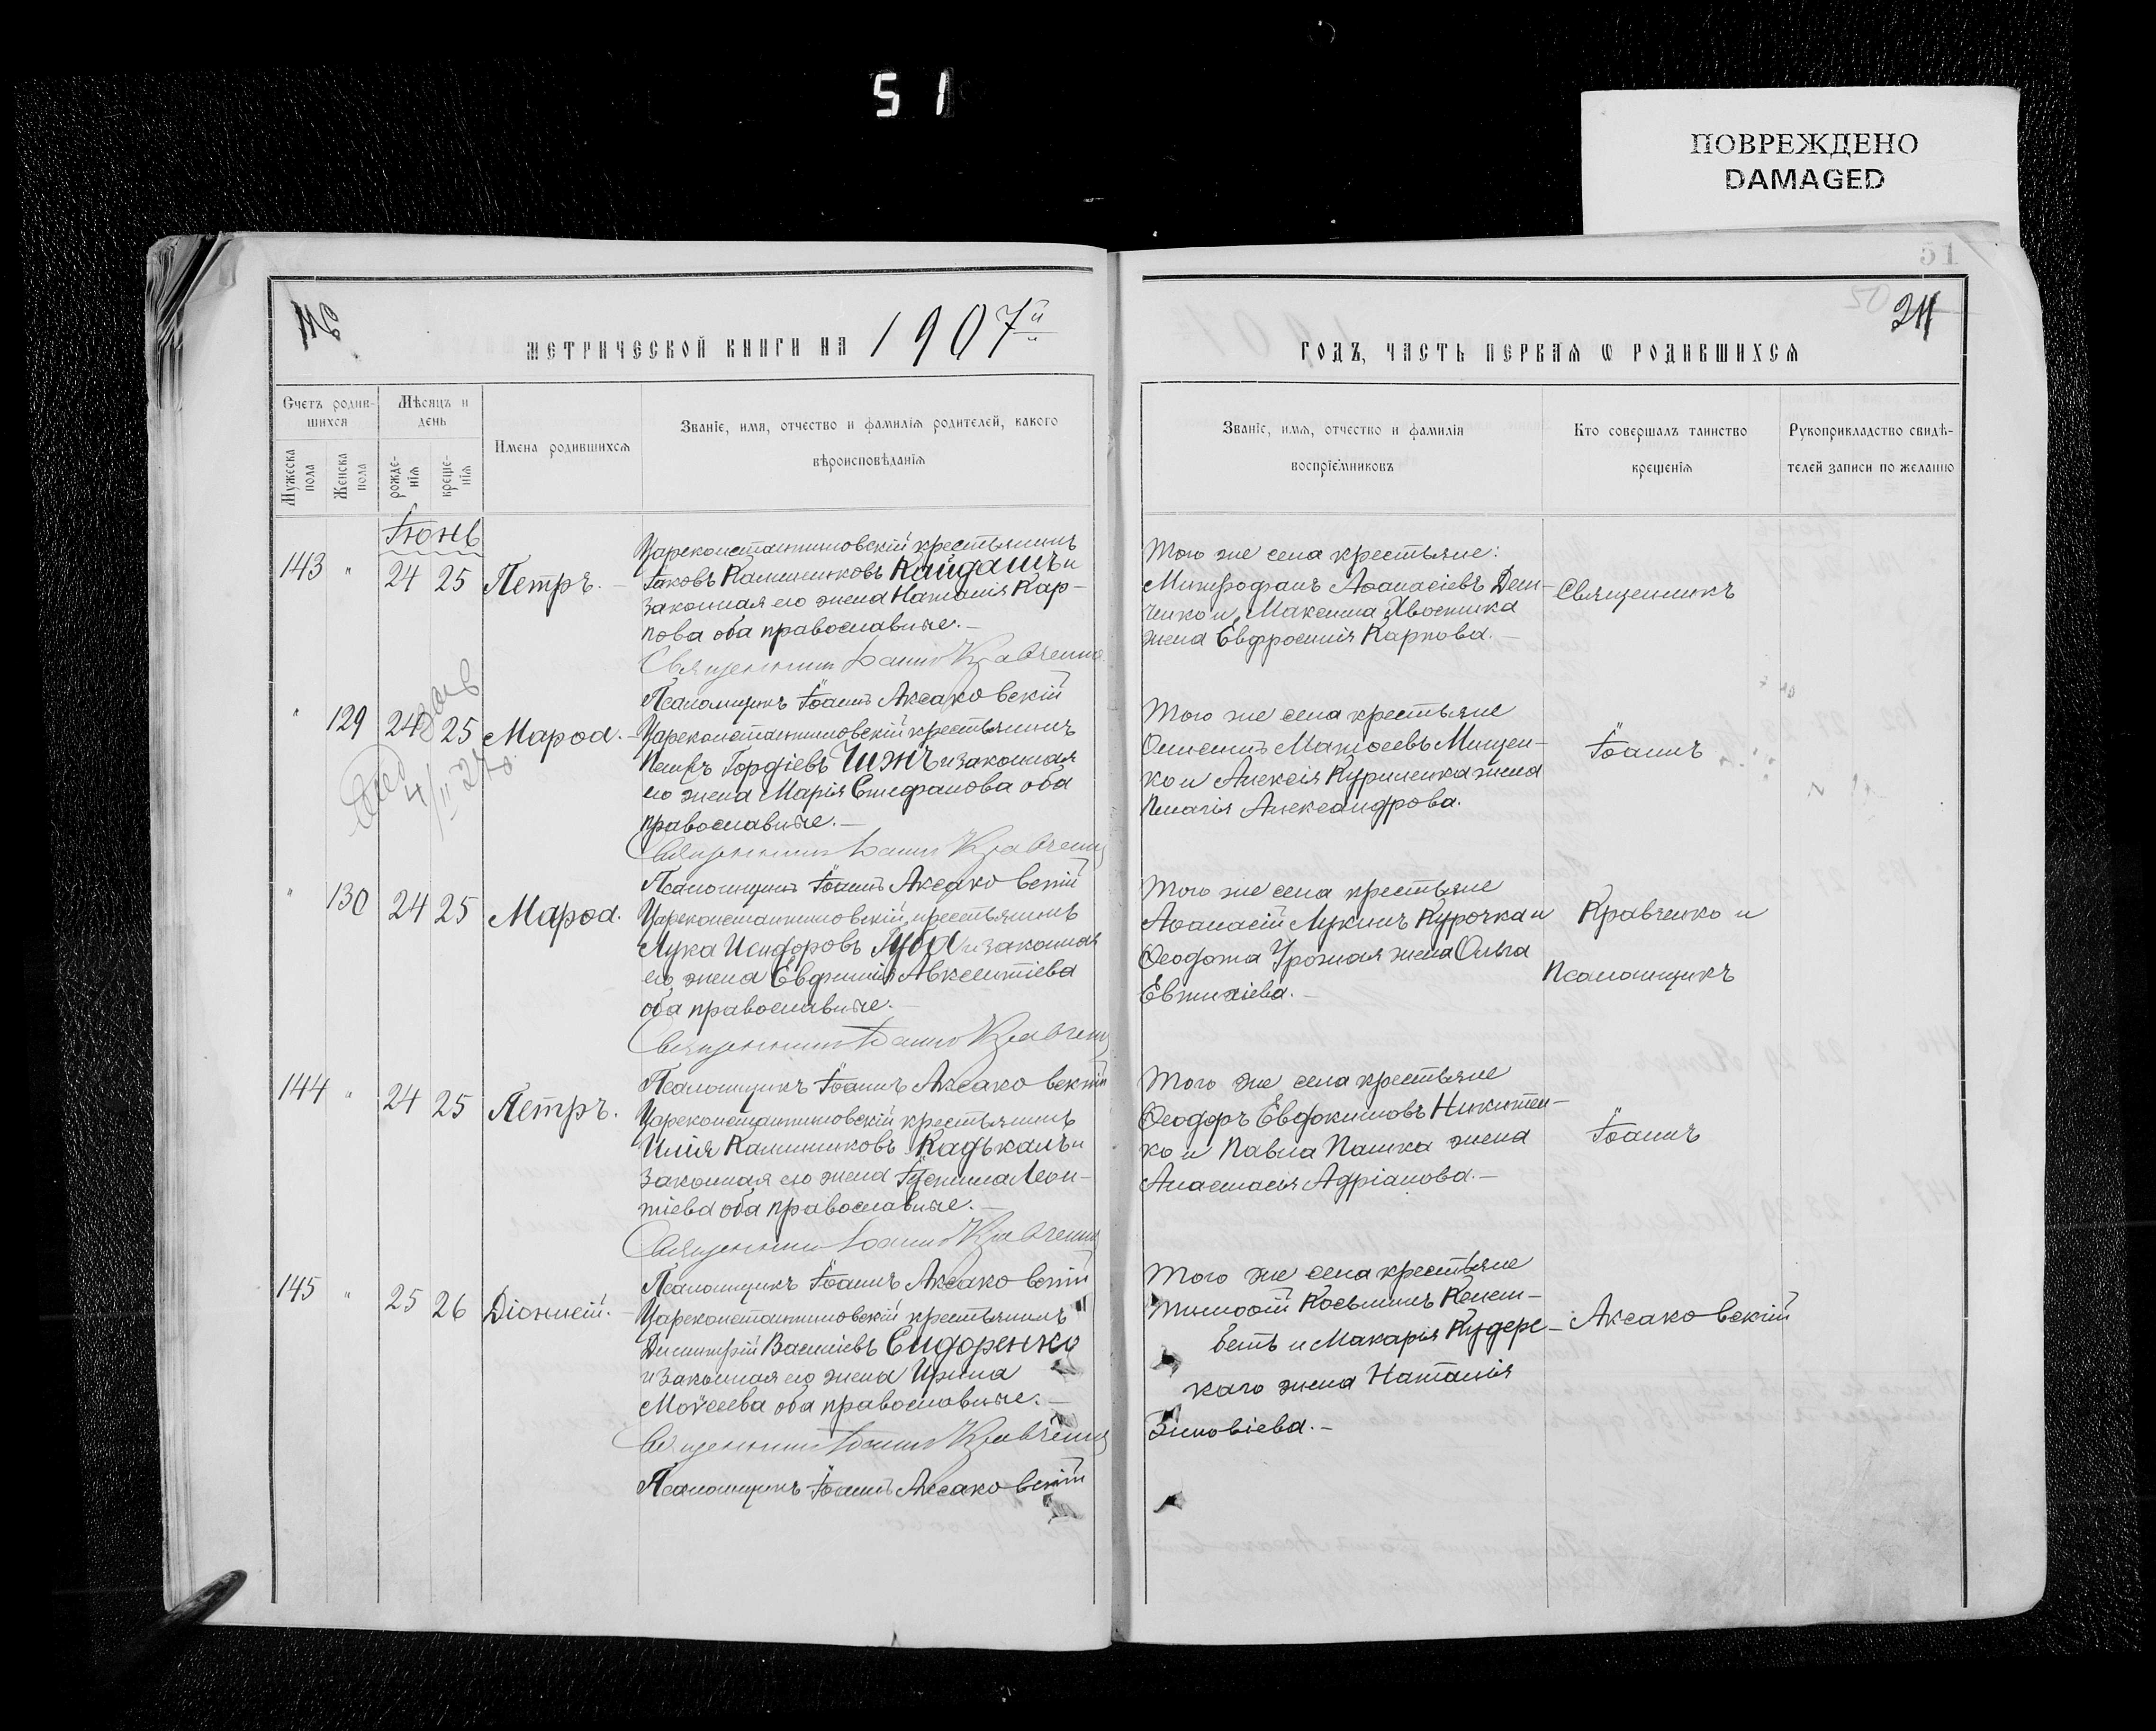 51
ПОВРЕЖДЕНО
DAMAGED
51
24
МЕТРИЧЕСКОЙ КНИГИ НА 1907й
ГОДЪ, ЧАСТЬ ПЕРВАЯ Ѡ РОДИВШИХСЯ
Счетъ родив-
шихся
Мужеска пола
Женска пола
Мѣсяцъ и
день
рожде-
нія
креще-
нія
Имена родившихся
Званіе, имя, отчество и фамилія родителей, какого
вѣроисповѣданія
Званіе, имя, отчество и фамилія
воспріемниковъ
Кто совершалъ таинство
крещенія
Рукоприкладство свидѣ-
телей записи по желанію
Іюнь
143 " 24 25 Петръ.
Цареконстантиновскій крестьянинъ
Іаковъ Калинниковъ Кайдашъ и
законная его жена Наталія Кар-
пова оба православные.
Священникъ Іоаннъ Кравченко
Псаломщикъ Іоаннъ Аксаковскій
Того же села крестьяне:
Митрофанъ Аѳанасіевъ Дем-
ченко и Максима Хвостика
жена Евфросинія Карпова.
" 129 24 25 Марѳа.
Цареконстантиновскій крестьянинъ
Петръ Гордіевъ Чижъ и законная
его жена Марія Стефанова оба
православные.
Священникъ Іоаннъ Кравченко
Псаломщикъ Іоаннъ Аксаковскій
Того же села крестьяне
Матѳеевъ Мищен-
ко и Алексія Куриленка жена
Пелагія Александрова.
" 130 24 25 Марѳа.
Цареконстантиновскій крестьянинъ
Лука Исидоровъ Губа и законная
его жена Евфимія Авксентіева
оба православные.
Священникъ Іоаннъ Кравченко
Псаломщикъ Іоаннъ Аксаковскій
Того же села крестьяне
Аѳанасій Лукинъ Курочка и
Ѳеодота жена Ольга
Евтихіева.
144 " 24 25 Петръ.
Цареконстантиновскій крестьянинъ
Илія Калинниковъ Кадькалъ и
законная его жена Іустина Леон-
тіева оба православные.
Священникъ Іоаннъ Кравченко
Псаломщикъ Іоаннъ Аксаковскій
Того же села крестьяне
Ѳеодоръ Евдокимовъ Никитен-
ко и Павла Пашка жена
Анастасія Адріанова.
145 " 25 26 Діонисій.
Цареконстантиновскій крестьянинъ
Димитрій Василіевъ Сидоренко
и законная его жена Ирина
Моѵсеева оба православные.
Священникъ Іоаннъ Кравченко
Псаломщикъ Іоаннъ Аксаковскій
Того же села крестьяне
Тимоѳій Косьминъ
и Макарія Кудере-
каго жена Наталія
Зиновіева.
Священникъ
Іоаннъ
Кравченко и
Псаломщикъ
Іоаннъ
Аксаковскій